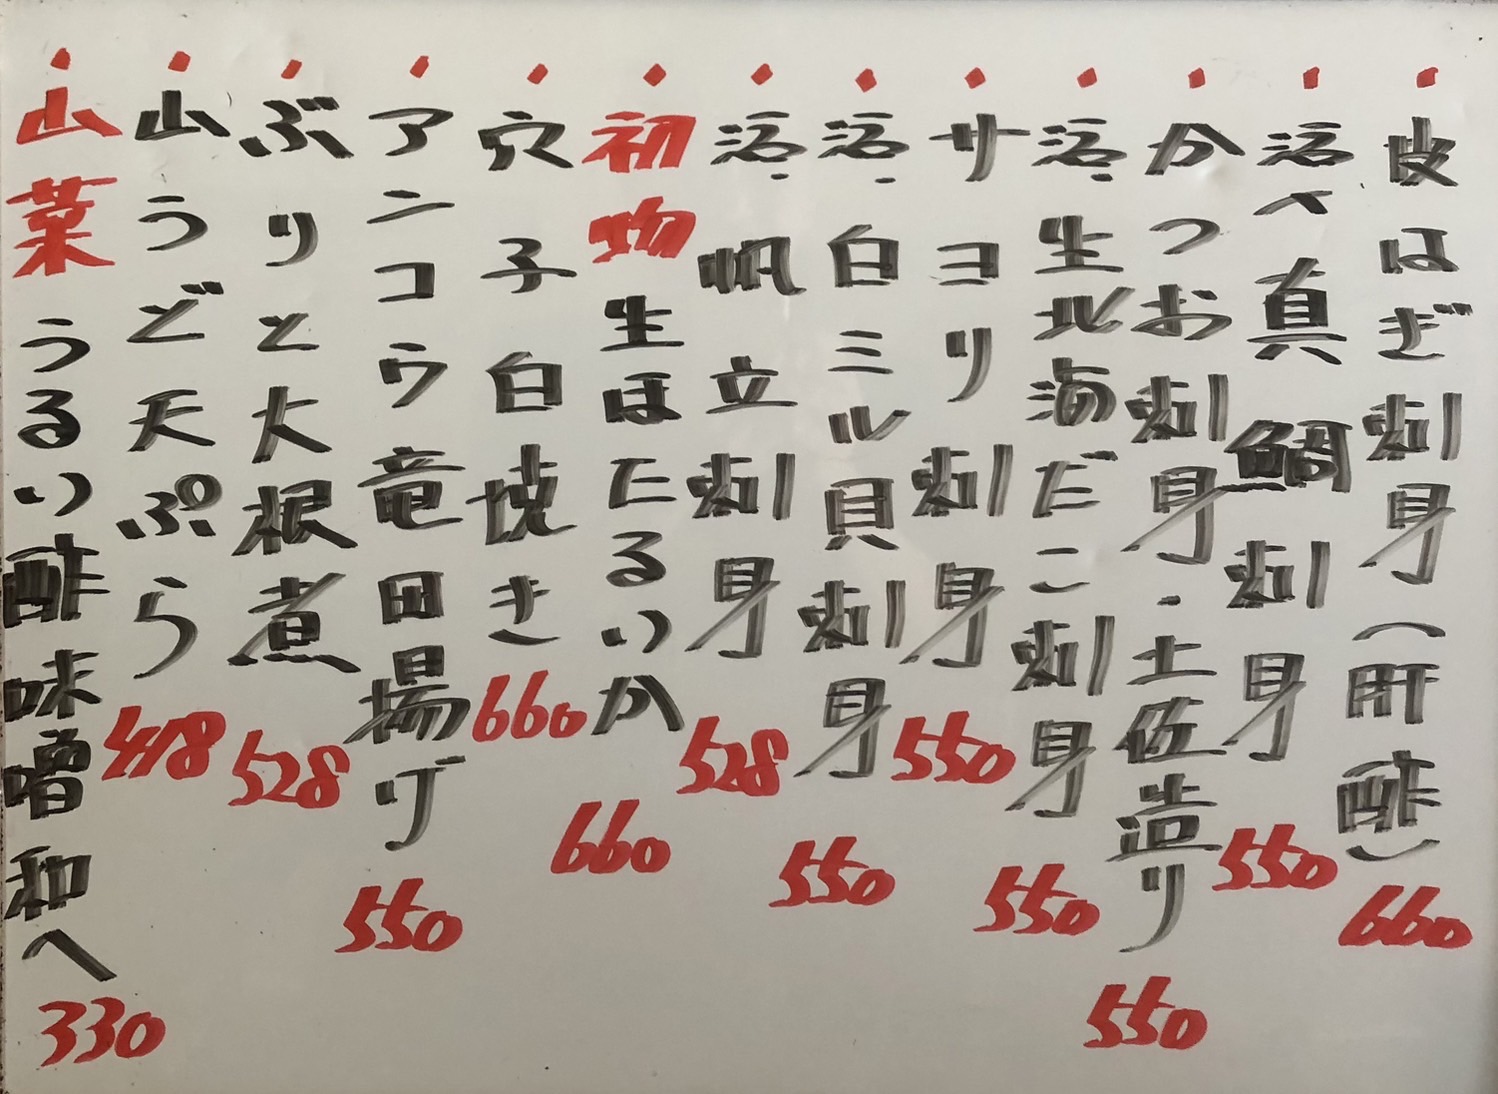 ・皮はぎ刺身(肝酢) 660
・活〆真鯛刺身 550
・かつお刺身・土佐造り 550
・活生北海だこ刺身 550
・サヨリ刺身 550
・活白ミル貝刺身 550
・活帆立刺身 528
・初物生ほたるいか 660
・穴子白焼き 660
・アンコウ竜田揚げ 550
・ぶりと大根煮 528
・山うど天ぷら 418
・山菜うるい酢味噌和へ 330